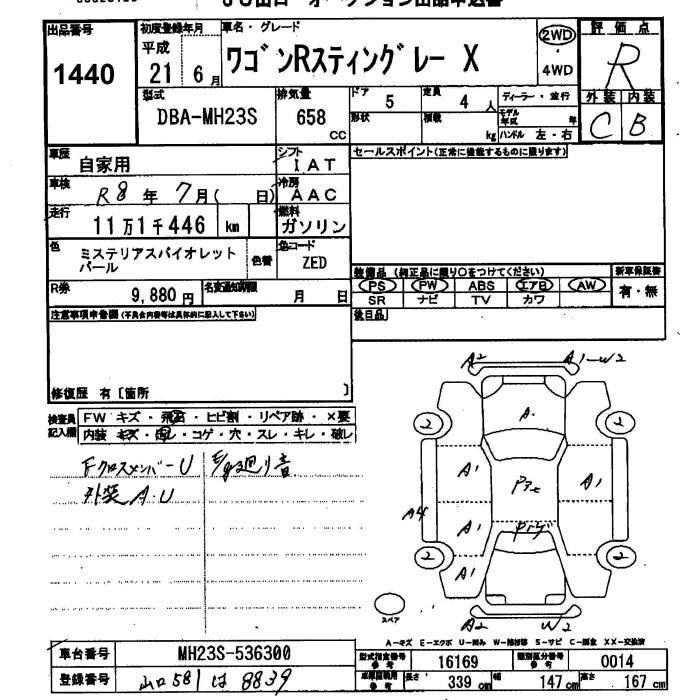 出品番号 初度登録年月 車名・グレード 2WD 評価点
1440 平成 21年 6月 ワゴンRスティングレー X 4WD R
型式 排気量 ドア 5 定員 4人 ディーラー・並行 外装 内装
DBA-MH23S 658 cc 形状 積載 kg モデル年式 年 ハンドル 左・右 C B
車歴 自家用 シフト IAT セールスポイント(正常に機能するものに限ります)
車検 R8年 7月( 日) 冷房 AAC
走行 11万1千446 km 燃料 ガソリン
色 ミステリアスバイオレットパール 色替 色コード ZED
装備品 (純正品に限り○をつけてください) 新車保証書
PS PW ABS エアB AW 有・無
SR ナビ TV カワ
R券 9,880円 名変通知期限 月 日
後日品
注意事項申告欄(不具合内容等は具体的に記入して下さい)
修復歴 有〔箇所 〕
検査員記入欄 FW キズ・飛石・ヒビ割・リペア跡・×要
内装 キズ・汚レ・コゲ・穴・スレ・キレ・破レ
FクロスメンバーU
外装 A・U
A2 A1-W2
A
2 2
A1 A1
A4 A1
2 2
A1
A2 W2
スペア
A-キズ E-エクボ U-凹み W-補修跡 S-サビ C-腐食 XX-交換済
車台番号 MH23S-536300 型式指定番号 参考 16169 類別区分番号 参考 0014
登録番号 山口581 は 8839 長さ 339cm 幅 147cm 高さ 167cm